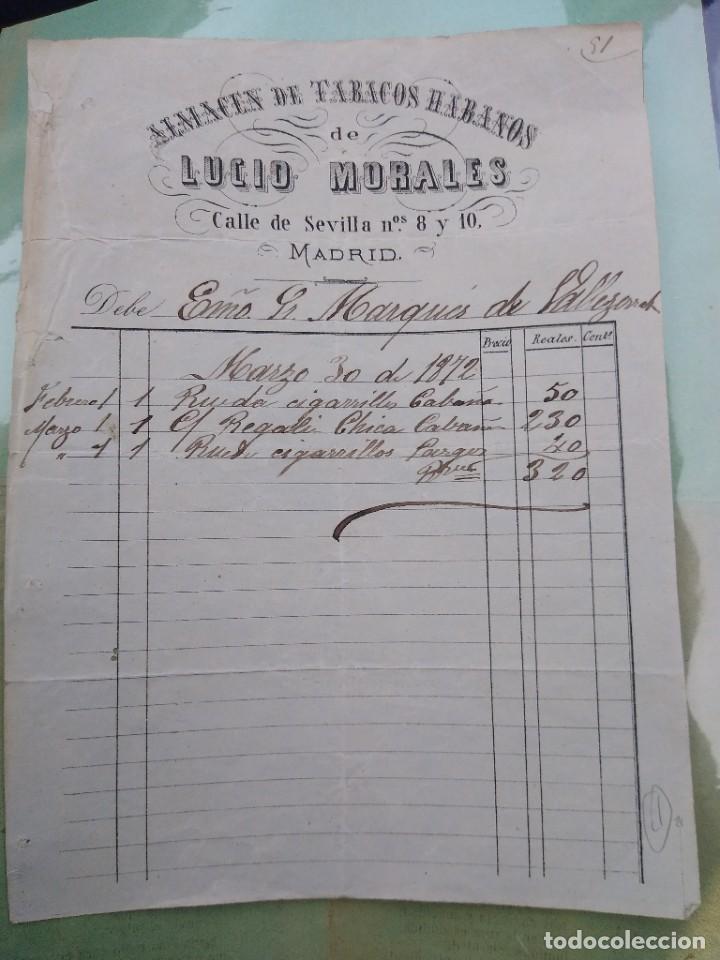 51
ALMACEN DE TABACOS HABANOS
de
LUCIO MORALES
Calle de Sevilla n.os 8 y 10.
MADRID.
Debe Exmo Sr Marqués de
Precio Reales. Cents
Marzo 30 de 1872
Febrero 1 1 Rueda cigarrillos Cabaña 50
Marzo 1 1 C/ Regalia Chica Cabaña 230
" 1 1 Rueda cigarrillos Largos 40
320
todocoleccion
todocoleccion.net